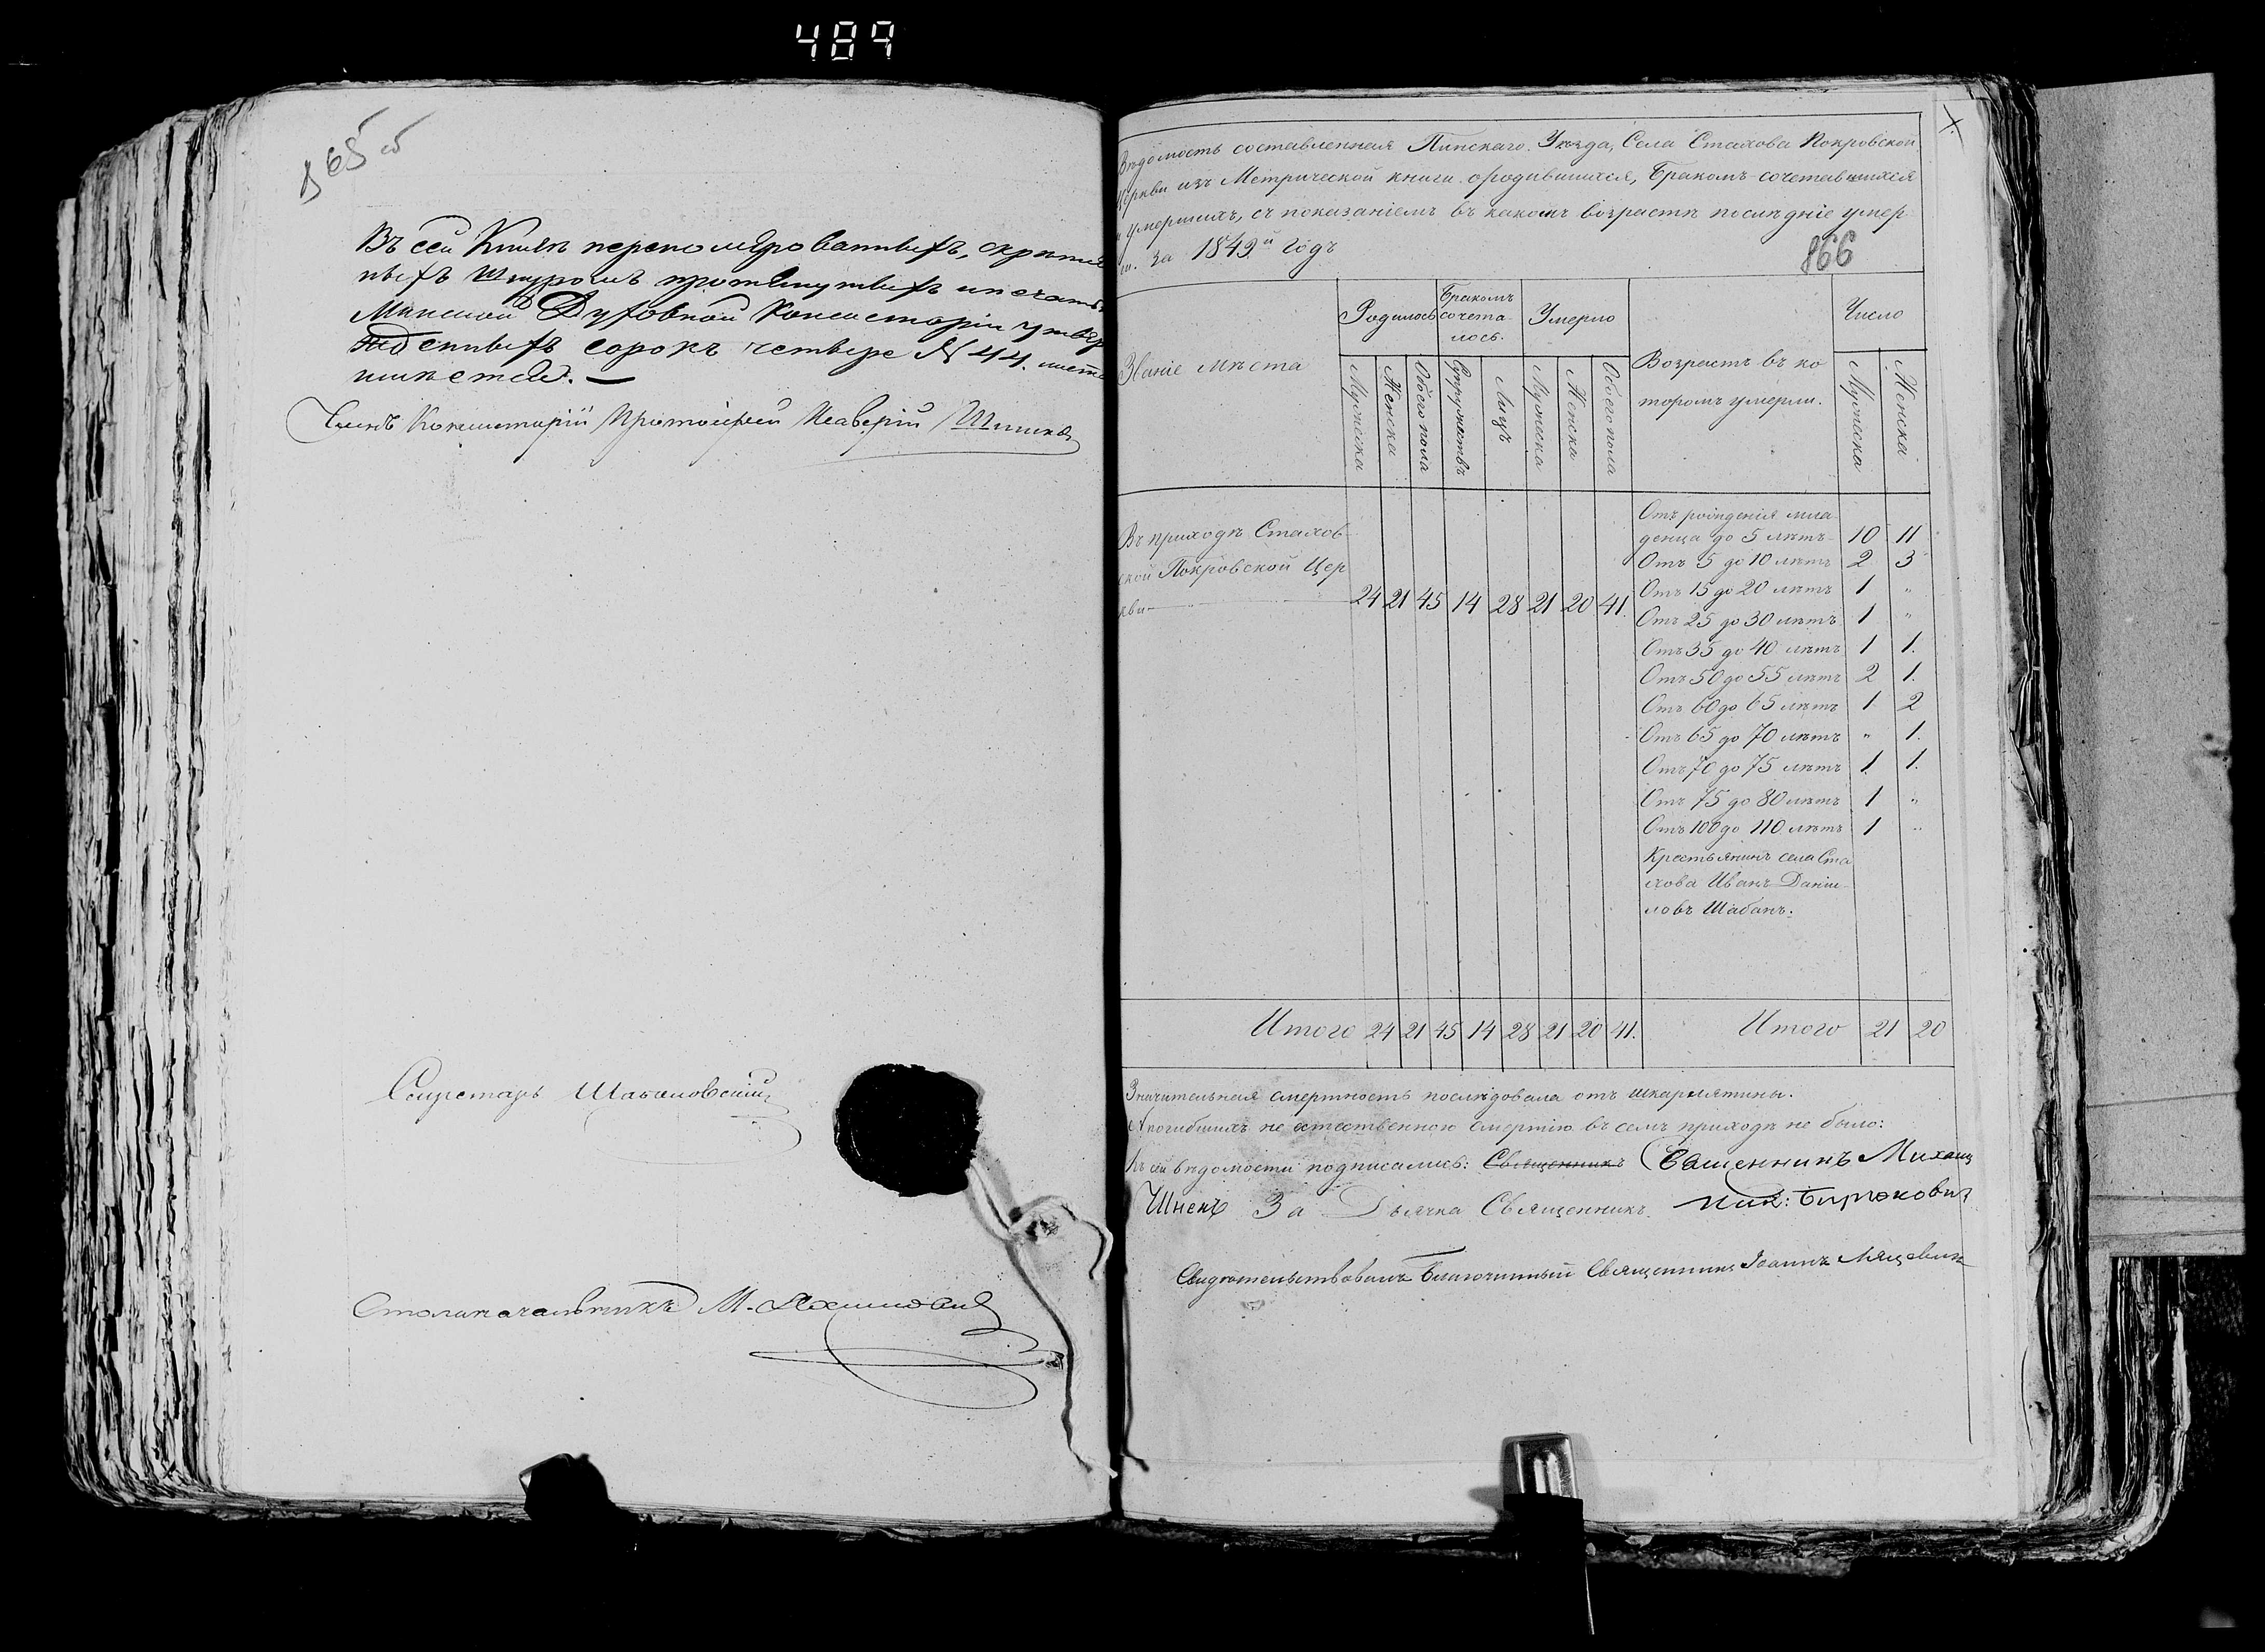 489
865 об
Въ сей Книгѣ перенумерованныхъ, скрѣплен
ныхъ шнуромъ протянутыхъ и печатью
Минской Духовной Консисторіи утвер
жденныхъ сорокъ четыре № 44. листа
имѣется. —
Членъ Консисторіи Протоіерей
Секретарь
Столоначальникъ М.
Вѣдомость составленная Пинскаго Уѣзда, Села Стахова Покровской
Церкви изъ Метрической книги о родившихся, Бракомъ сочетавшихся
и умершихъ, съ показаніемъ въ какомъ возрастѣ послѣдніе умер
ли. За 1849й годъ
866
Званіе мѣста
Родилось
Бракомъ
сочета
лось.
Умерло
Возрастъ въ ко
торомъ умерли.
Число
Мужеска
Женска
Обоего пола
Супружествъ
Лицъ
Мужеска
Женска
Обоего пола
Мужеска
Женска
Въ приходѣ Стахов
ской Покровской Цер
кви — 24 21 45 14 28 21 20 41.
Отъ рожденія мла
денца до 5 лѣтъ 10 11
Отъ 5 до 10 лѣтъ 2 3
Отъ 15 до 20 лѣтъ 1 "
Отъ 25 до 30 лѣтъ 1 "
Отъ 35 до 40 лѣтъ 1 1.
Отъ 50 до 55 лѣтъ 2 1.
Отъ 60 до 65 лѣтъ 1 2
Отъ 65 до 70 лѣтъ " 1.
Отъ 70 до 75 лѣтъ 1 1.
Отъ 75 до 80 лѣтъ 1 "
Отъ 100 до 110 лѣтъ 1 "
Крестьянинъ села Ста
хова Иванъ Даніи
ловъ Шабанъ.
Итого 24 21 45 14 28 21 20 41. Итого 21 20
Значительная смертность послѣдовала отъ шкарлятины.
А погибшихъ не естественною смертію въ семъ приходѣ не было:
Къ сей вѣдомости подписались: Священникъ Священникъ Михаил
За Дьячка Священникъ Бирюкович
Свидѣтельствовалъ Благочинный Священникъ Іоаннъ Мацевичъ